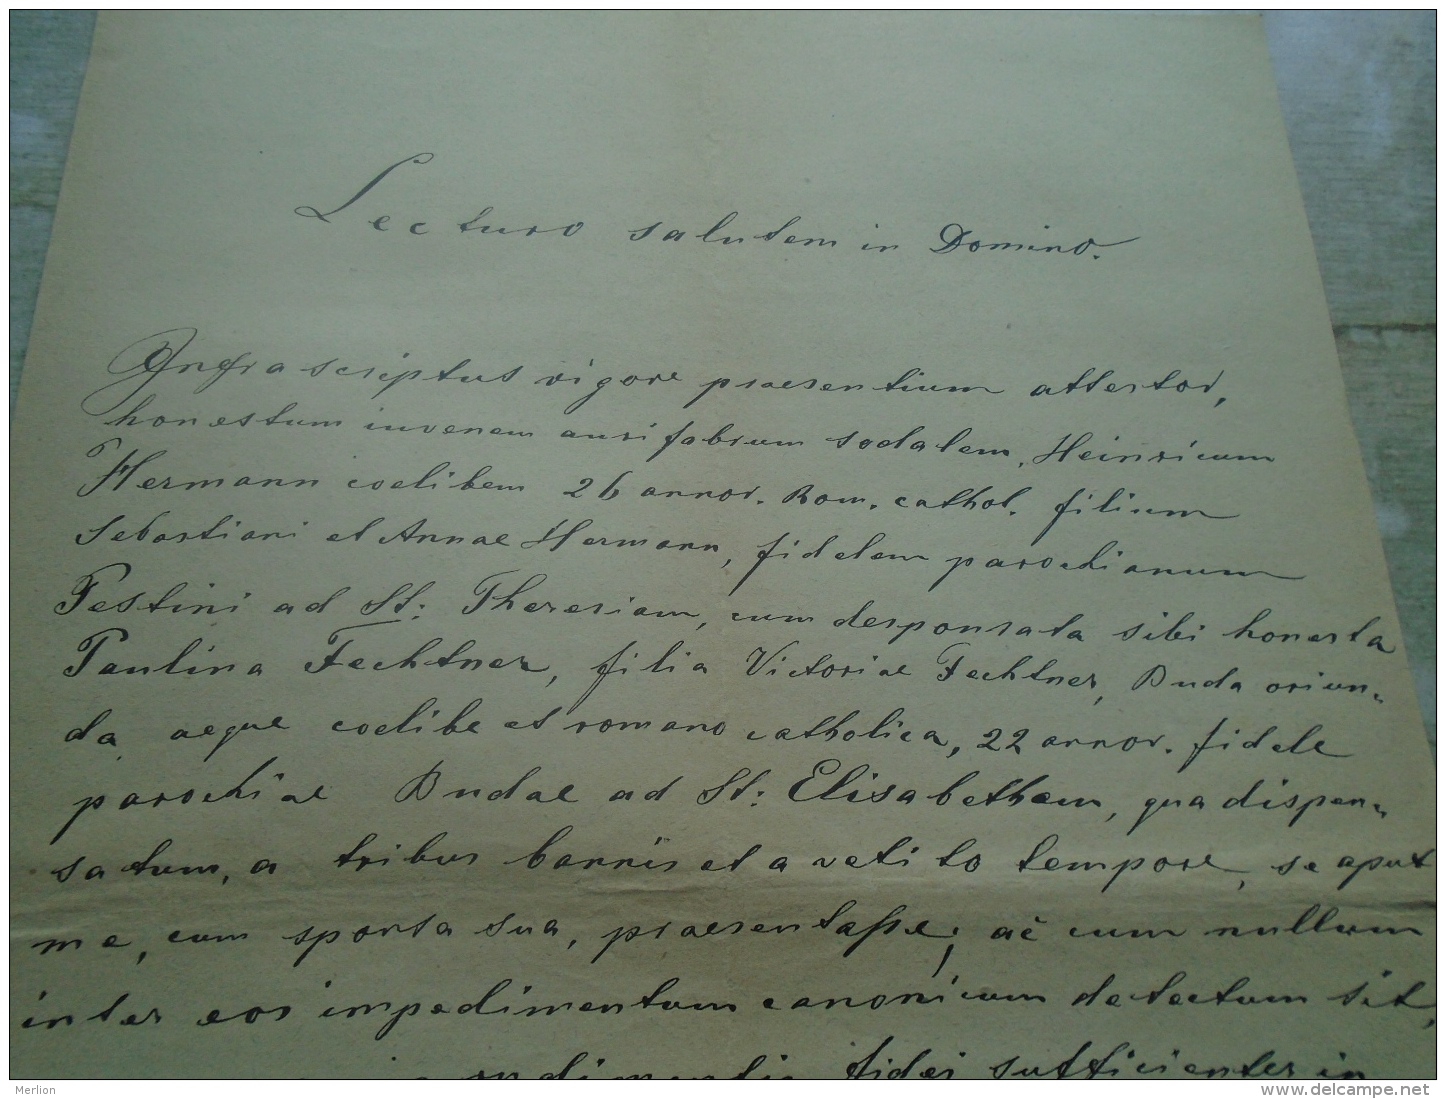 Lecturo salutem in Domino.
Infrascriptus vigore praesentium attestor,
honestum iuvenem aurifabrum sodalem, Heinricum
Hermann coelibem 26 annor. Rom. cathol. filium
Sebastiani et Annae Hermann, fidelem parochianum
Pestini ad St: Theresiam, cum desponsata sibi honesta
Paulina Fechtner, filia Victoriae Fechtner, Buda oriun-
da aeque coelibe et romano catholica, 22 annor. fidele
parochiae Budae ad St: Elisabetham, qua dispen-
satum, a tribus bannis et a vetito tempore, se aput
me, cum sponsa sua, praesentasse; ac cum nullum
inter eos impedimentum canonicum detectum sit,
fidei sufficienter in
Merlion
www.delcampe.net